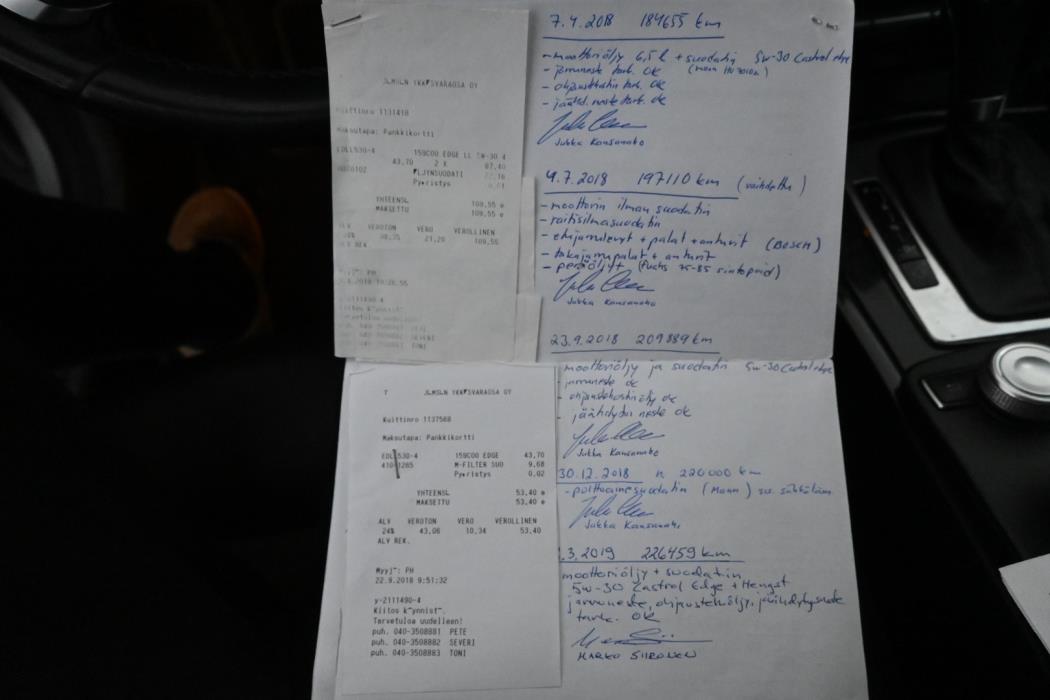 JLMSLN YKK SVARAOSA OY
Kuittinro 1131418
Maksutapa: Pankkikortti
EDLL530-4 159C00 EDGE LL 5W-30 4
43,70 2 X 87,40
LJYNSUODATI
Py ristys
YHTEENSL 109,55 e
MAKSETTU 109,55 e
ALV VEROTON VERO VEROLLINEN
21,20 109,55
ALV REK.
: PH
-2111490-4
Kiitos k ynnist
Tervetuloa uudelleen!
puh. 040-3508881 PETE
puh. 040-3508882 SEVERI
puh. 040-3508883 TONI
7.4.2018 184655 km
- moottoriöljy 6,5 l + suodatin 5w-30 Castrol edge
- jarruneste tark. OK
- ohjaustehostin tark. OK
- jäähd. neste tark. ok
Jukka Kansanaho
4.7.2018 197110 km (vaihdettu)
- moottorin ilman suodatin
- raitisilmasuodatin
- etujarrulevyt + palat + anturit (BOSCH)
- takajarrupalat + anturit
- peräöljyt (Fuchs 75-85 sintopoid)
Jukka Kansanaho
23.9.2018 209889 km
- moottoriöljy ja suodatin 5w-30 Castrol edge
- jarruneste ok
- ohjaustehostinöljy ok
- jäähdytin neste ok
Jukka Kansanaho
30.12.2018 n. 220000 km
- polttoainesuodatin (Mann)
Jukka Kansanaho
.3.2019 226459 km
moottoriöljy + suodatin
5w-30 Castrol Edge + Hengst
jarruneste, ohjaustehöljy, jäähdytysneste
tark. OK
MARKO SIIRONEN
T JLMSLN YKK SVARAOSA OY
Kuittinro 1137568
Maksutapa: Pankkikortti
EDL 530-4 159C00 EDGE 43,70
410-1265 M-FILTER SUO 9,68
Py ristys 0,02
YHTEENSL 53,40 e
MAKSETTU 53,40 e
ALV VEROTON VERO VEROLLINEN
24% 43,06 10,34 53,40
ALV REK.
Myyj~: PH
22.9.2018 9:51:32
y-2111490-4
Kiitos k~ynnist~.
Tervetuloa uudelleen!
puh. 040-3508881 PETE
puh. 040-3508882 SEVERI
puh. 040-3508883 TONI